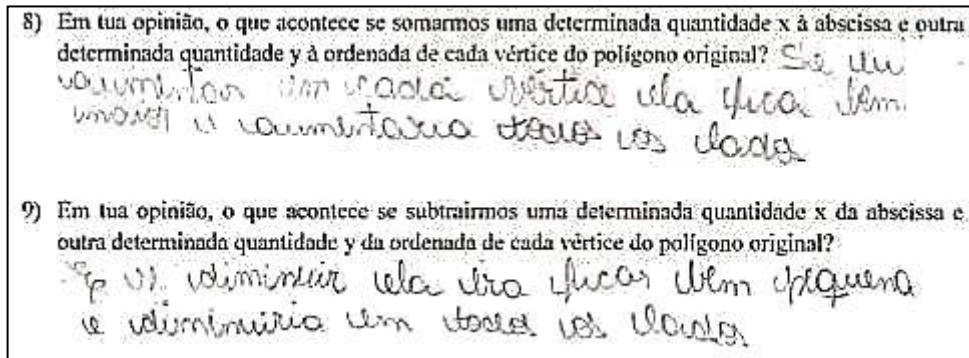 8) Em tua opinião, o que acontece se somarmos uma determinada quantidade x à abscissa e outra
determinada quantidade y à ordenada de cada vértice do polígono original? Se eu
aumentar em cada vértice ela fica bem
maior e aumentaria todos os lados
9) Em tua opinião, o que acontece se subtrairmos uma determinada quantidade x da abscissa e
outra determinada quantidade y da ordenada de cada vértice do polígono original?
diminuir ela ira ficar bem pequena
e diminuiria em todos os lados